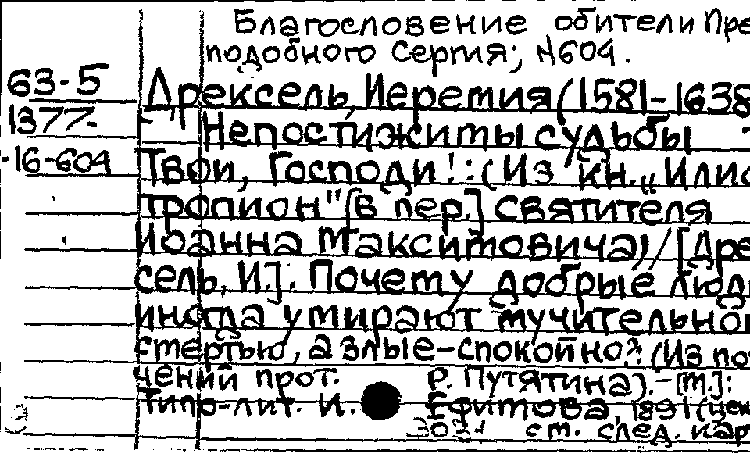 Благословение обители Пре
подобного Сергия; №604.
63-5 Дрексель, Иеремия (1581-1638
1377- Непостижимы судьбы
-16-604 Твои, Господи!: (Из кн. „Илио
тропион" [в пер.] святителя
Иоанна Максимовича) / [Дре
сель, И.]. Почему добрые люди
иногда умирают мучительной
смертью, а злые-спокойно? (Из по
чений прот. Р. Путятина). - [М.]:
Типо-лит. И. Ефимова, 1891 (цен
см. след. кар